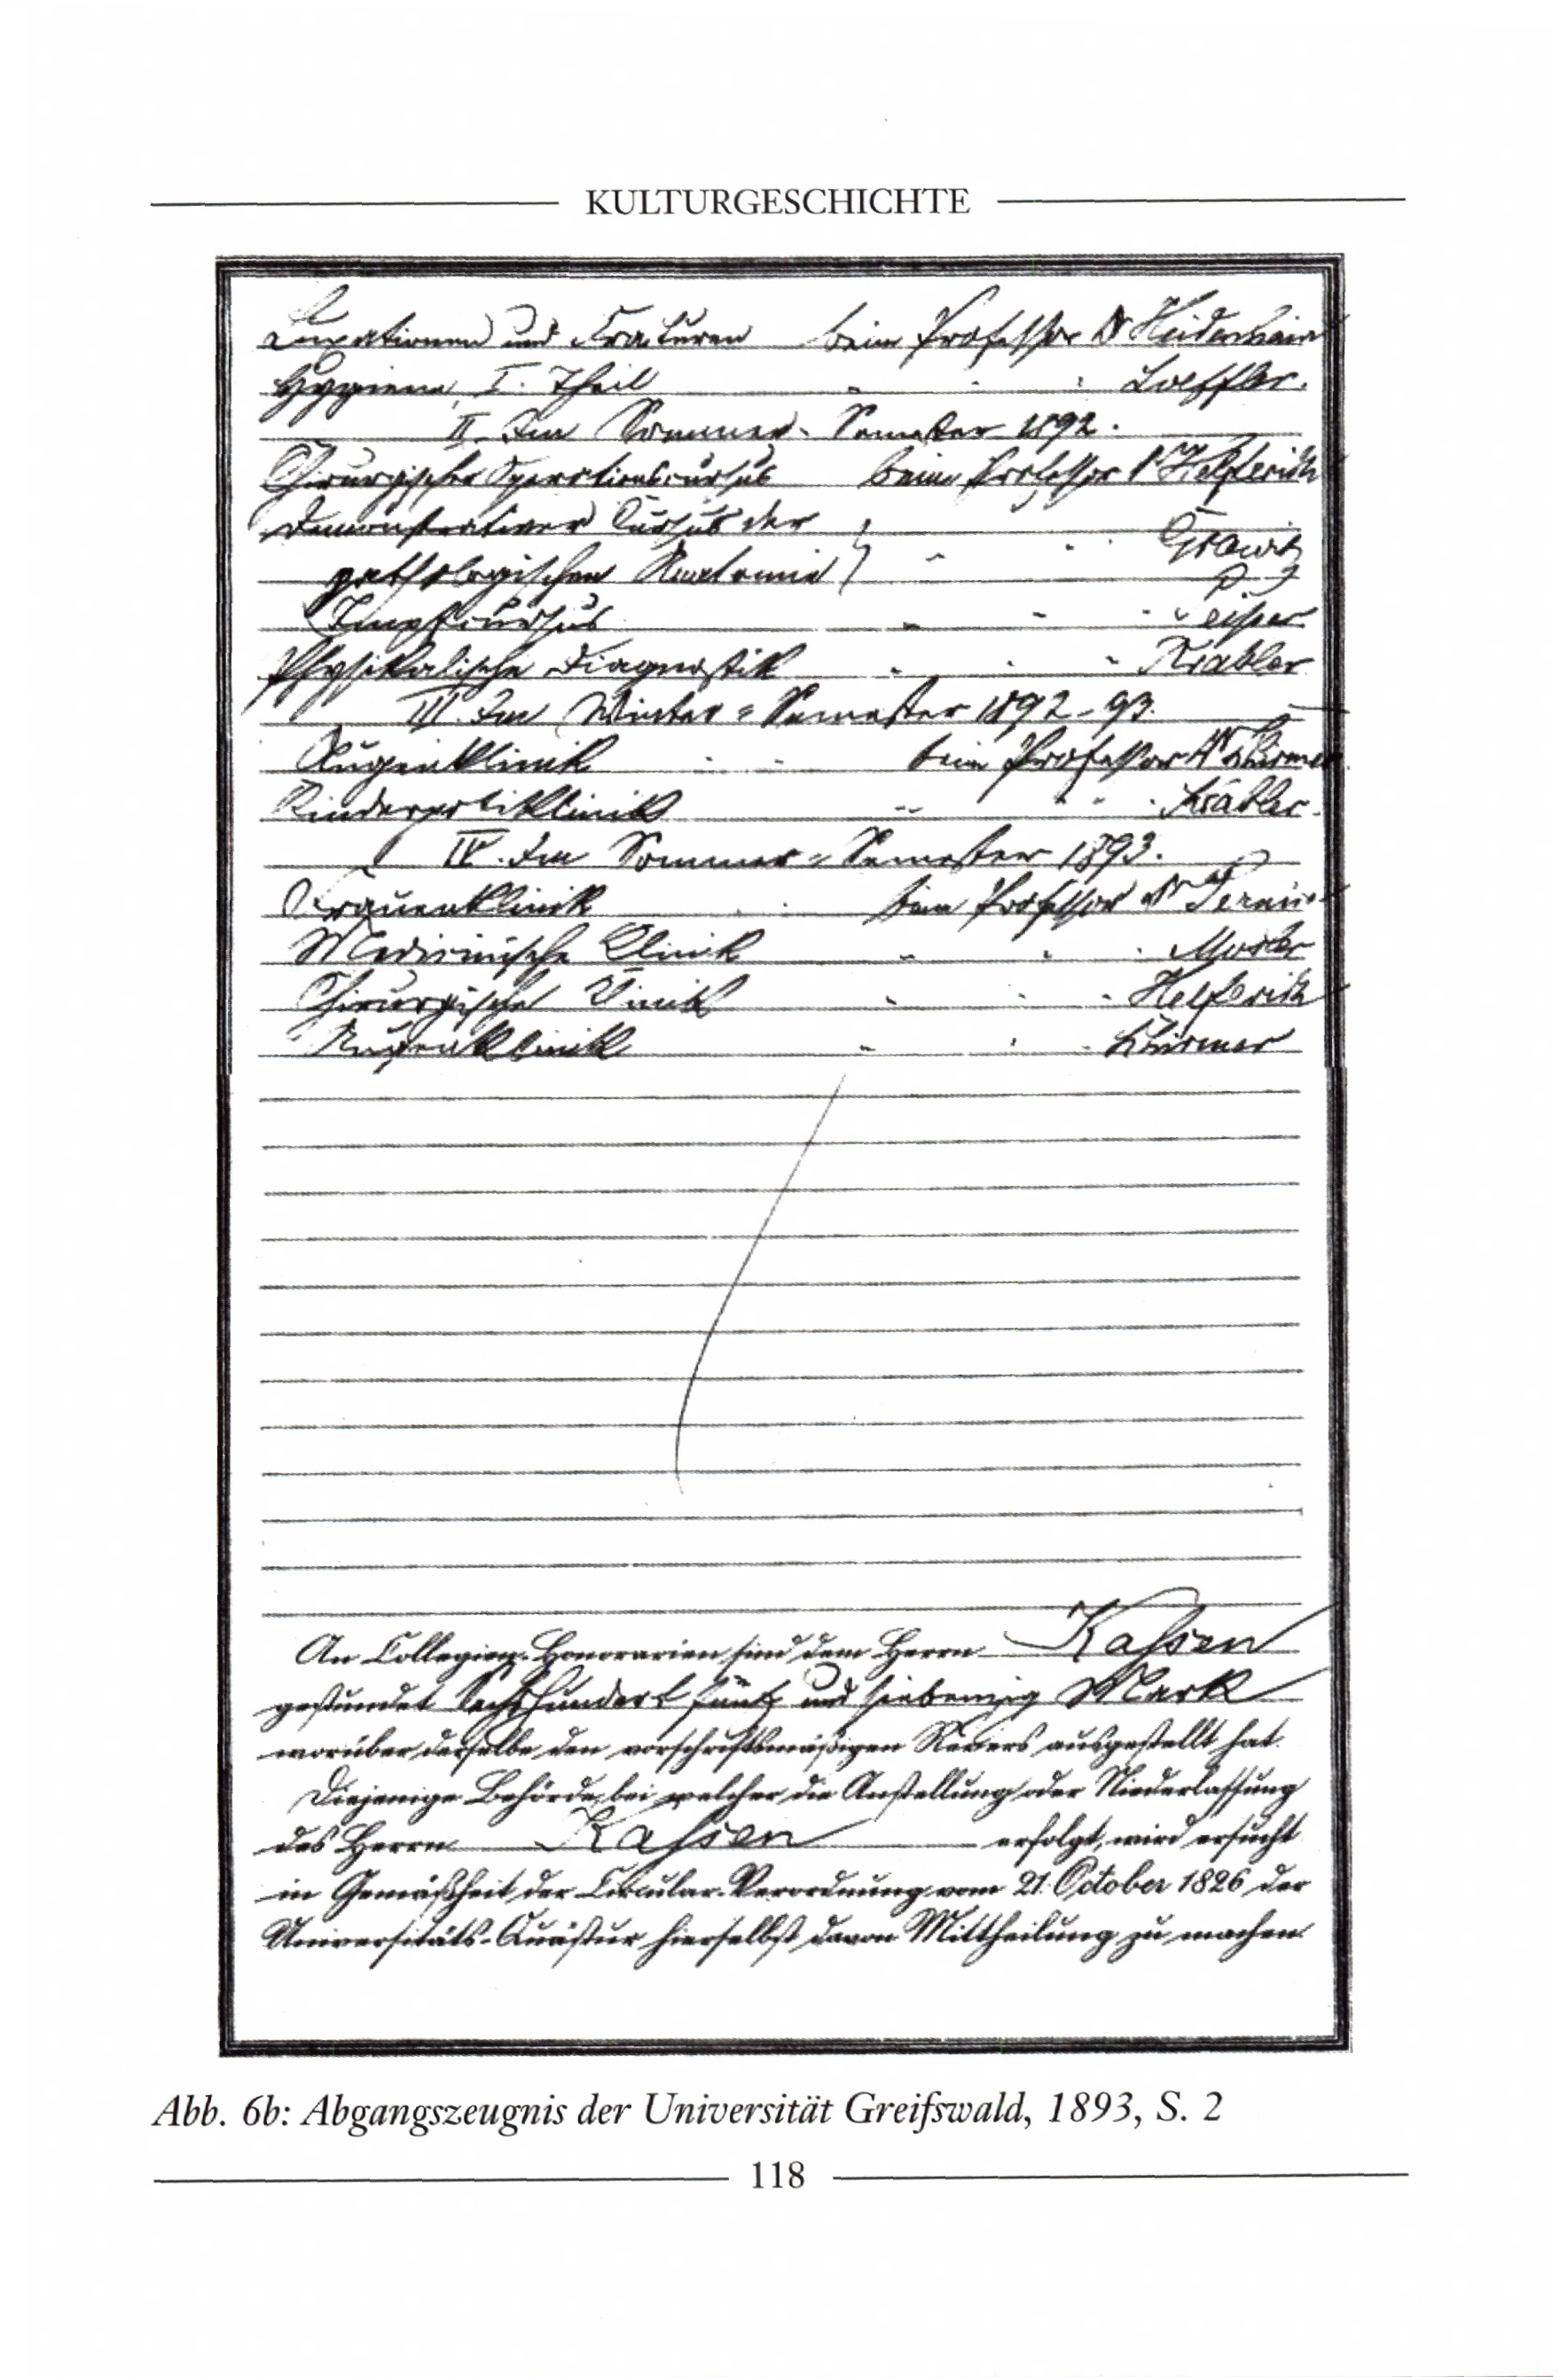 KULTURGESCHICHTE
Luxationen und Fracturen beim Professor Dr Heidenhain
Hygiene, I. Theil " " " Loeffler.
II. Im Sommer-Semester 1892.
Chirurgischer Operationscursus beim Professor Dr Helferich
Demonstrativer Cursus der
pathologischen Anatomie } " " Grawitz
Impfcursus " " " Peiper
Physikalische Diagnostik " " " Krabler
III. Im Winter=Semester 1892-93.
Augenklinik beim Professor Dr Schirmer
Kinderpoliklinik " " " Krabler.
IV. Im Sommer=Semester 1893.
Frauenklinik beim Professor Dr Pernice
Medicinische Klinik " " " Mosler
Chirurgische Klinik " " " Helferich
Augenklinik " " " Schirmer
An Collegien-Honorarien sind dem Herrn Kassen
gestundet Sechshundert fünf und siebenzig Mark
worüber derselbe den vorschriftsmäßigen Revers ausgestellt hat.
Diejenige Behörde, bei welcher die Anstellung oder Niederlassung
des Herrn Kassen erfolgt, wird ersucht
in Gemäßheit der Circular-Verordnung vom 21. October 1826 der
Universitäts-Quästur hierselbst davon Mittheilung zu machen.
Abb. 6b: Abgangszeugnis der Universität Greifswald, 1893, S. 2
118